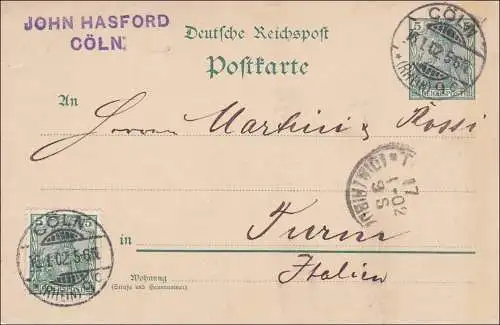 JOHN HASFORD
CÖLN
Deutsche Reichspost
Postkarte
An
Herren Martini & Rossi
in Turin
Italien
Wohnung
(Straße und Hausnummer)
5
CÖLN
16.1.02.5-6N
(RHEIN)
5
CÖLN
16.1.02.5-6N
(RHEIN)
17
1-02
9 S